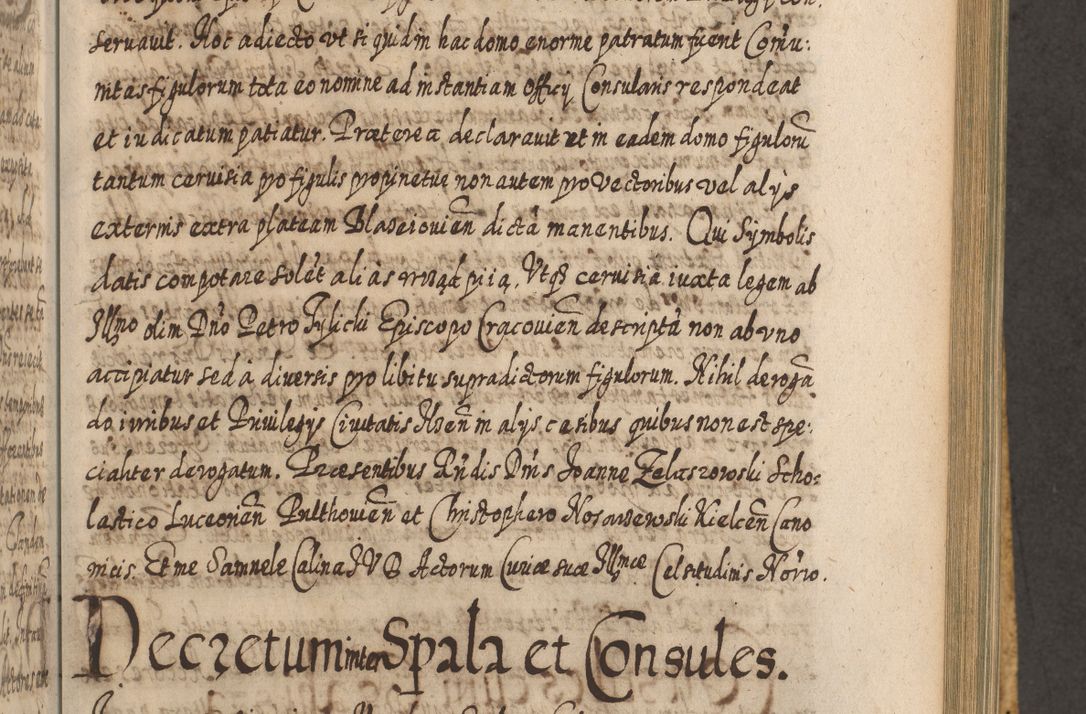 servauit. Hoc adiecto vt si quid in hac domo enorme patratum fuerit Comu:
nitas figulorum tota eo nomine ad instantiam Officij Consularis respondeat
et iudicatum patiatur. Præterea declarauit vt in eadem domo figulorũ
tantum ceruisia pro figulis propinetur non autem pro Vectoribus vel alijs
externis extra plateam Blazeiouień dictã manentibus. Qui Symbolis
datis compotare solẽt aliàs Vtqз ceruisia iuxta legem ab
Illmo olim Dńo Petro Tylicki Episcopo Cracouień descriptã non ab vno
accipiatur sed à diuersis pro libitu supradictorum figulorum. Nihil derogã
do iuribus et Priuilegijs Ciuitatis in alijs casibus quibus non est spe:
cialiter derogatum. Præsentibus Rńdis Dńis Joanne Zelaszowski Scho:
lastico Luceoneń Pulthouień et Christophero Kielceń Cano
nicis. Et me Samuele Calina JVD Actorum Curiæ suæ Illmæ Celsitudinis Norio.
Decretum inter Spala et Consules.